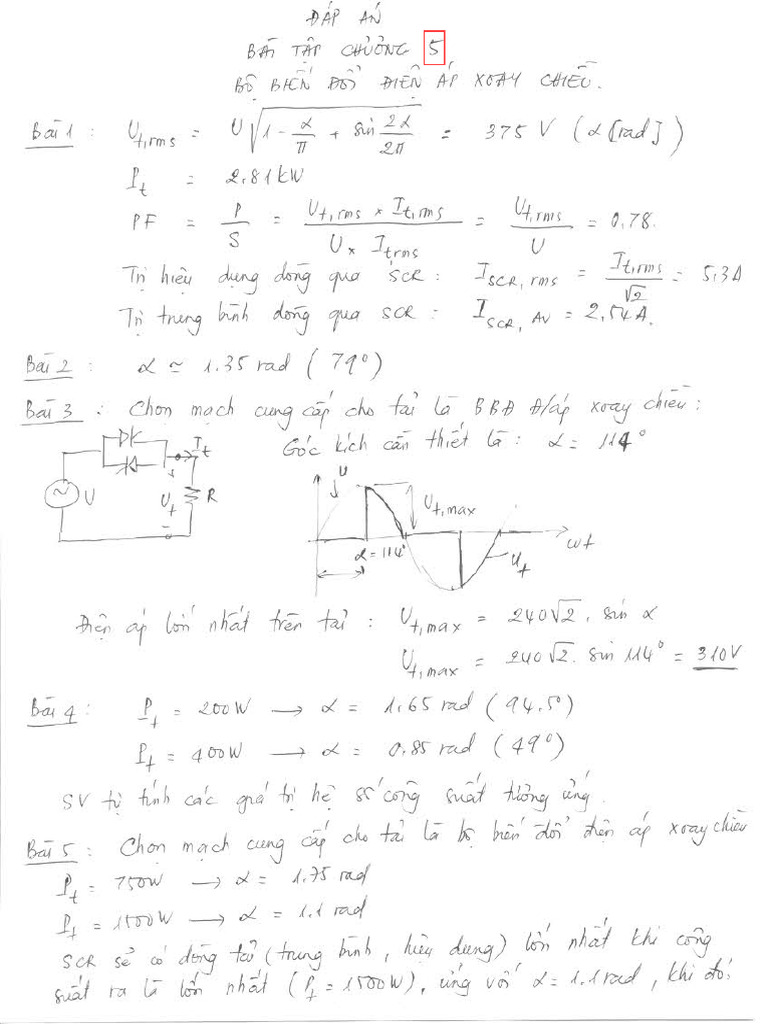 ĐÁP ÁN
BÀI TẬP CHƯƠNG 5
BỘ BIẾN ĐỔI ĐIỆN ÁP XOAY CHIỀU.
Bài 1 : U_t,rms = U√(1 - α/π + sin 2α/2π) = 375 V (α [rad])
P_t = 2.81 kW
PF = P/S = (U_t,rms × I_t,rms)/(U × I_t rms) = U_t,rms/U = 0,78.
Trị hiệu dụng dòng qua SCR : I_SCR, rms = I_t,rms/√2 = 5,3A
Trị trung bình dòng qua SCR : I_SCR, AV = 2,54A.
Bài 2 : α ≃ 1.35 rad (79°)
Bài 3 : Chọn mạch cung cấp cho tải là BBĐ Đ/áp xoay chiều :
Góc kích cần thiết là : α = 114°
U
I_t
U_t
R
u
U_t,max
α = 114°
ωt
U_t
Điện áp lớn nhất trên tải : U_t,max = 240√2 . sin α
U_t,max = 240√2. sin 114° = 310V
Bài 4 : P_t = 200W → α = 1.65 rad (94.5°)
P_t = 400W → α = 0.85 rad (49°)
SV tự tính các giá trị hệ số công suất tương ứng.
Bài 5 : Chọn mạch cung cấp cho tải là bộ biến đổi điện áp xoay chiều
P_t = 750W → α = 1.75 rad
P_t = 1500W → α = 1.1 rad
SCR sẽ có dòng tải (trung bình, hiệu dụng) lớn nhất khi công
suất ra là lớn nhất (P_t = 1500W), ứng với α = 1.1 rad, khi đó: